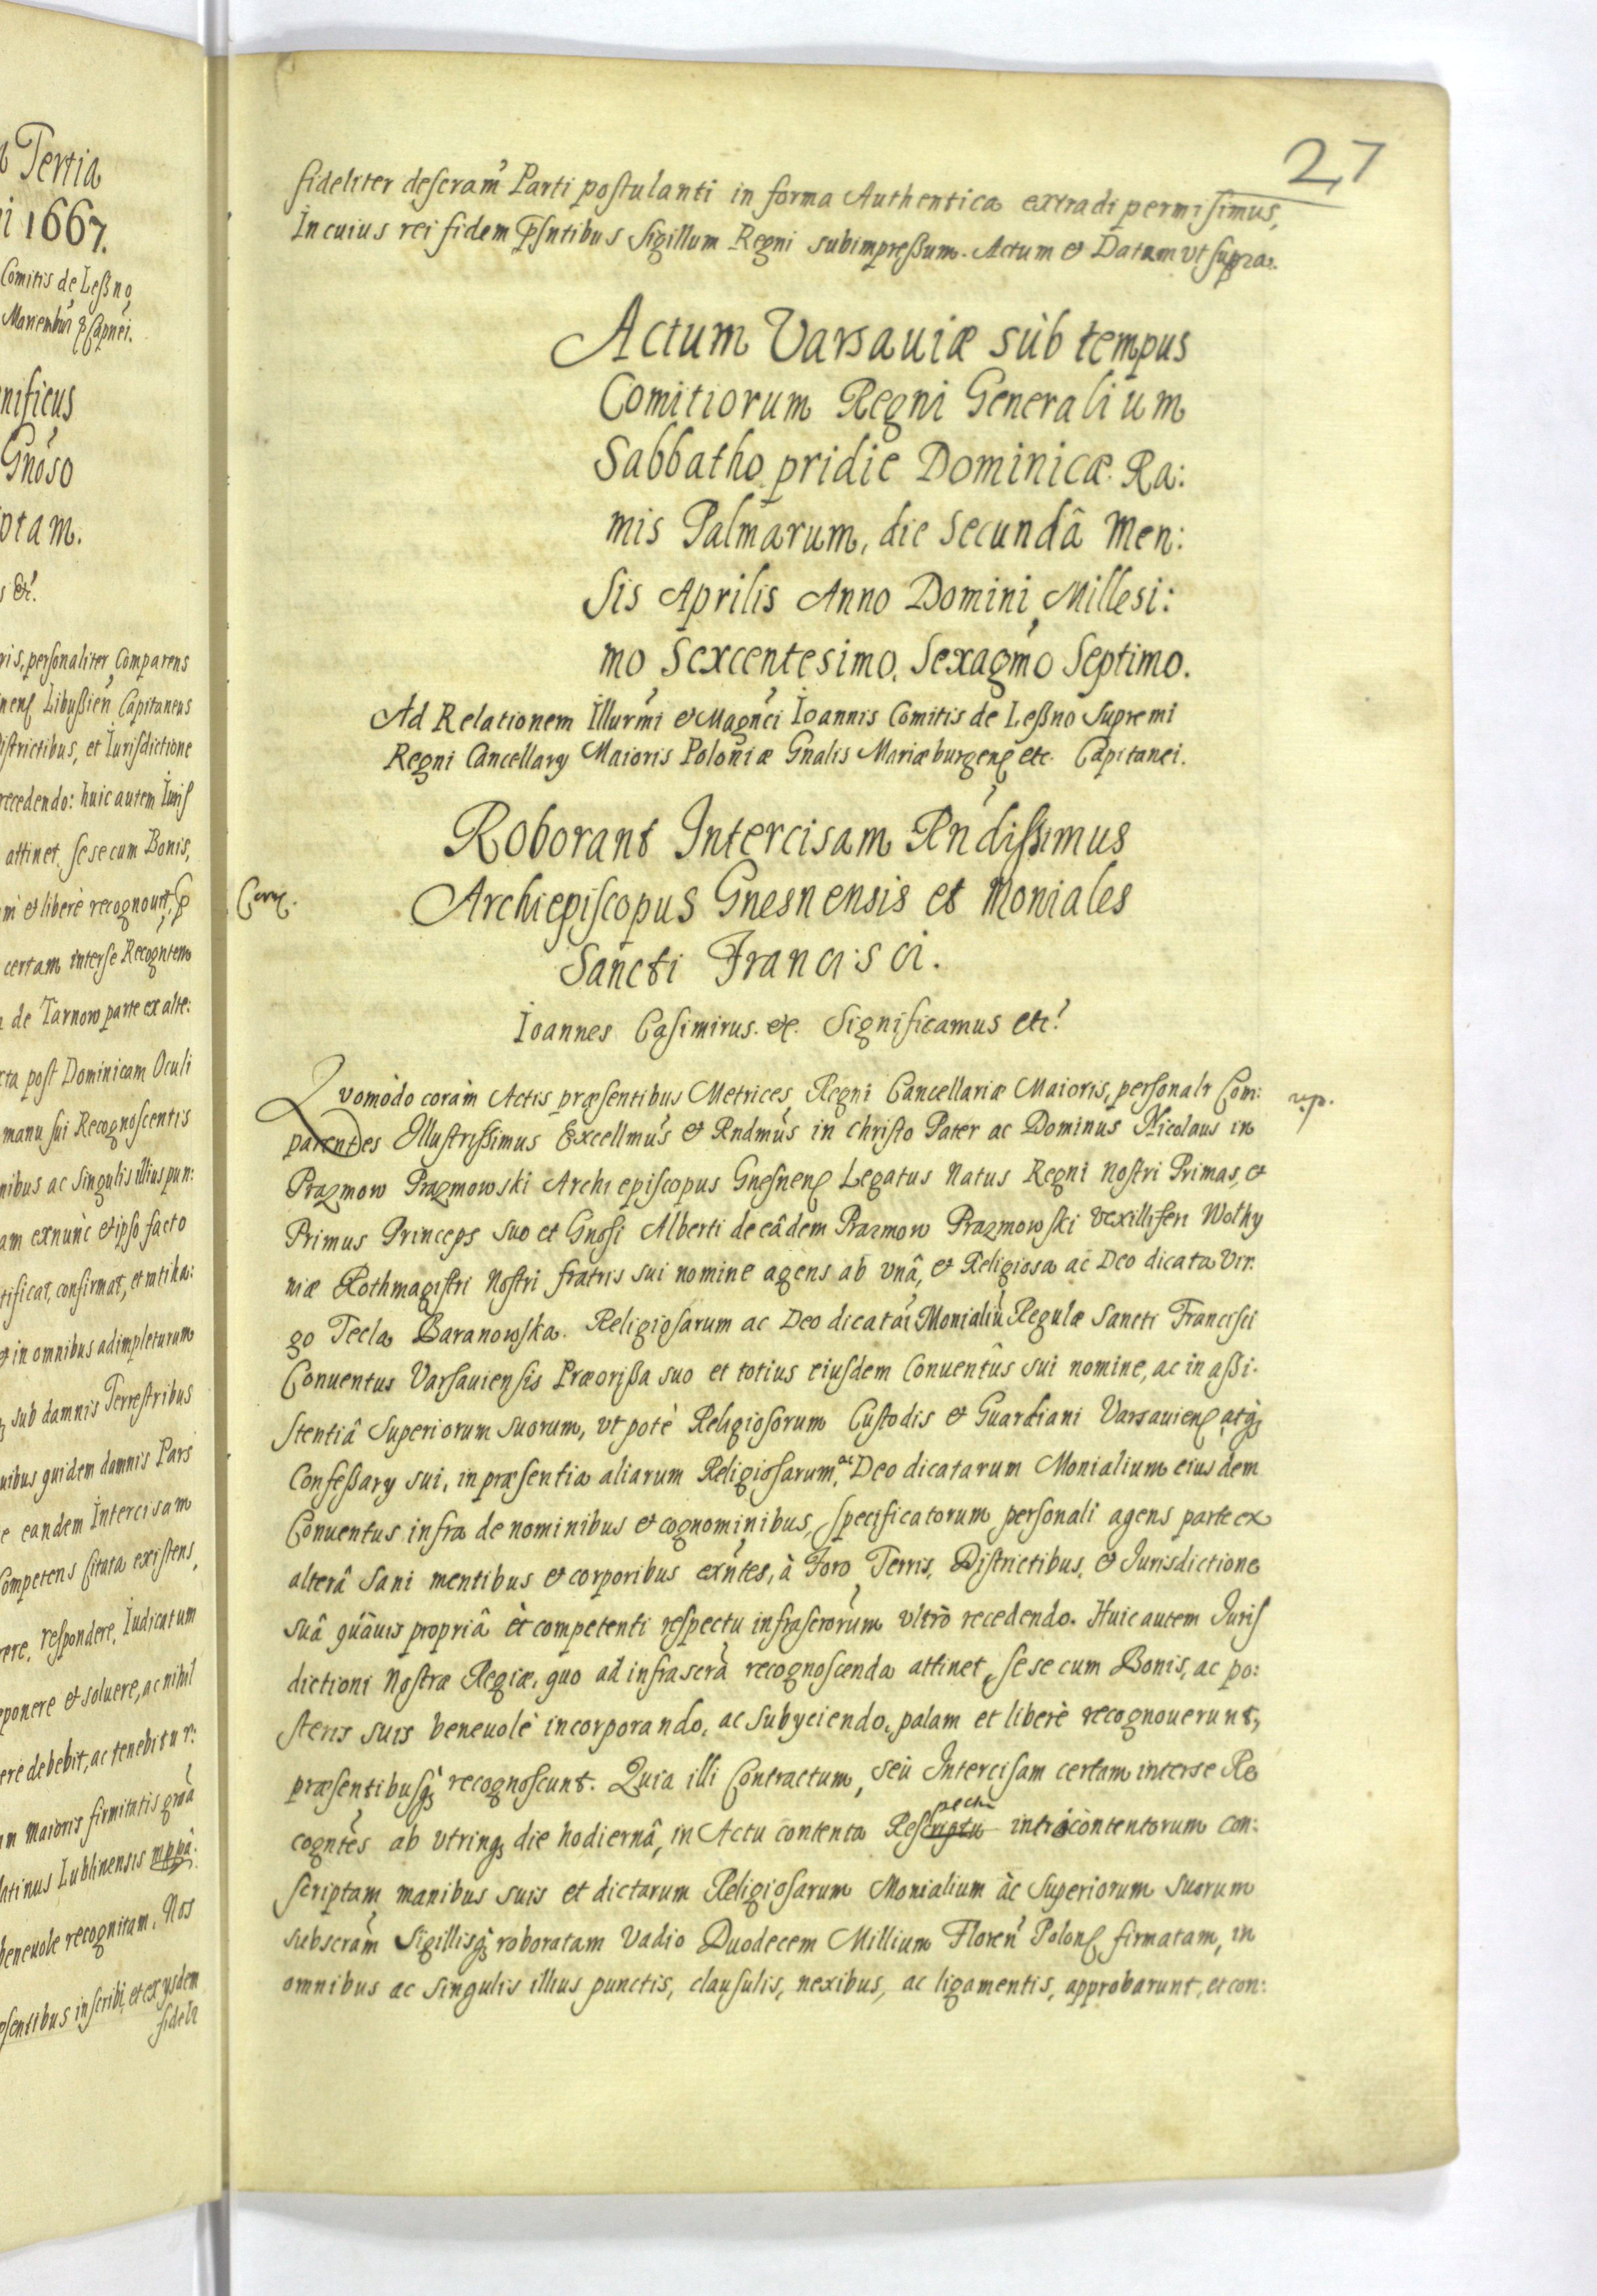 a Tertia
i 1667.
Comitis de Leßno
Marienbur: Capnei.
nificus
Gnoso
ptam.
s &c.
ris, personaliter Comparens
Libußien Capitaneus
istrictibus, et Iurisdictione
recedendo: huic autem Iuris
attinet sese cum Bonis,
m et liberè recognouit,
certam interse Recogntem
de Tarnow parte ex alte:
rta post Dominicam Oculi
manu sui Recognoscentis
nibus ac singulis illius pun:
am exnunc et ipso facto
tificat, confirmat, et ratiha:
et in omnibus adimpleturum
sub damnis Terrestribus
uibus quidem damnis Pars
e eandem Intercisam
Competens citata existens,
rere, respondere, Iudicatum
eponere et soluere, ac nihil
ere debebit, ac tenebitur:
m maioris firmitatis grãa
latinus Lublinensis mppa.
beneuole recognitam. Nos
psentibus inscribi, et ex ysdem
fidelr
27
fideliter descram Parti postulanti in forma Authentica extradi permisimus,
In cuius rei fidem Psntibus Sigillum Regni subimpreßum. Actum & Datum vt supra.
Actum Varsauiæ sùb tempus
Comitiorum Regni Generalium
Sabbatho pridie Dominicæ Ra:
mis Palmarum, die Secundâ Men:
sis Aprilis Anno Domini Millesi:
mo Sexcentesimo, Sexagmo Septimo.
Ad Relationem Illurmi & Magnci Ioannis Comitis de Leßno Supremi
Regni Cancellary Maioris Poloniæ Gnalis Mariæburgens etc. Capitanei.
Roborant Intercisam Rndissimus
Archiepiscopus Gnesnensis et Moniales
Sancti Francisci.
Ioannes Casimirus. &c. Significamus etc.
Quomòdo coràm Actis præsentibus Metrices Regni Cancellariæ Maioris, personalr Com:
parentes Illustrissimus Excellmus & Rndmus in Christo Pater ac Dominus Nicolaus in
Prazmow Prazmowski Archiepiscopus Gnesnens Legatus Natus Regni Nostri Primas, &
Primus Princeps suo et Gnosi Alberti de eâdem Prazmow Prazmowski vexilliferi Wolhy
niæ Rothmagistri Nostri fratris sui nomine agens ab vnâ, & Religiosa ac Deo dicata Vir:
go Tecla Baranowska. Religiosarum ac Deo dicatar Monialiu Regulæ Sancti Francisci
Conuentus Varsauiensis Præorißa suo et totius eiusdem Conuentûs sui nomine, ac in aßi:
stentiâ Superiorum suorum, vt potè Religiosorum Custodis & Guardiani Varsauiens, atq
Confeßary sui, in præsentia aliarum Religiosarum, ac Deo dicatarum Monialium eiusdem
Conuentus infra de nominibus & cognominibus, specificatorum personali agens parte ex
alterâ Sani mentibus & corporibus exntes, à Foro Terris, Districtibus, & Iurisdictione
suâ quâuis propriâ et competenti respectu infrascrorum vltrò recedendo. Huic autem Iuris
dictioni Nostræ Regiæ, quo ad infrascra recognoscenda attinet, sese cum Bonis, ac po:
steris suis beneuolè incorporando, ac subyciendo, palam et liberè recognouerunt,
præsentibusq recognoscunt. Quia illi Contractum, seù Intercisam certam interse Re
cogntes ab vtrinq die hodiernâ, in Actu contenta Rescriptu pectu intròcontentorum con:
scriptam manibus suis et dictarum Religiosarum Monialium àc Superiorum suorum
subscram Sigillisq roboratam Vadio Duodecem Millium Floren Polons firmatam, in
omnibus ac singulis illius punctis, clausulis, nexibus, ac ligamentis, approbarunt, et con: